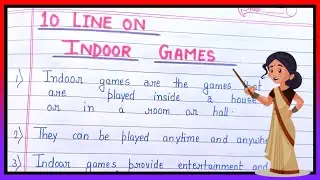 10 LINE ON
INDOOR GAMES
1) Indoor games are the games
are played inside a house
or in a room or hall.
2) They can be played anytime and anywhe
3) Indoor games provide entertainment and